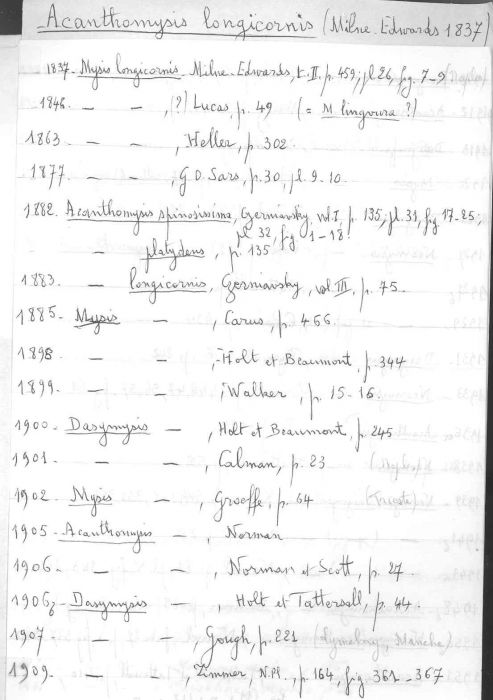 Acanthomysis longicornis (Milne-Edwards 1837)
1837- Mysis longicornis Milne-Edwards, t. II, p. 459; pl 26, fig. 7-9
1846 - - , (?) Lucas, p. 49 (= M. lingvura ?)
1863 - - , Heller, p. 302
1877 - - , G.O. Sars, p. 30, pl. 9-10.
1882. Acanthomysis spinosissima, Czerniavsky, vol. I, p. 135; pl. 31, fig 17-25;
pl 32, fig 1-18.
- platydens, p. 135
1883 - - longicornis, Czerniavsky, vol III, p. 75.
1885- Mysis - , Carus, p. 466
1898 - - , Holt et Beaumont, p. 344
1899. - - , Walker, p. 15-16.
1900- Dasymysis - , Holt et Beaumont, p. 245
1901 - - - , Calman, p. 23
1902 - Mysis - , Graeffe, p. 64
1905- Acanthomysis - , Norman
1906- - - , Norman et Scott, p. 27
1906b - Dasymysis - , Holt et Tattersall, p. 44.
1907 - - , Gough, p. 221
1909. - - , Zimmer, N.Pl., p. 164, fig. 361-367